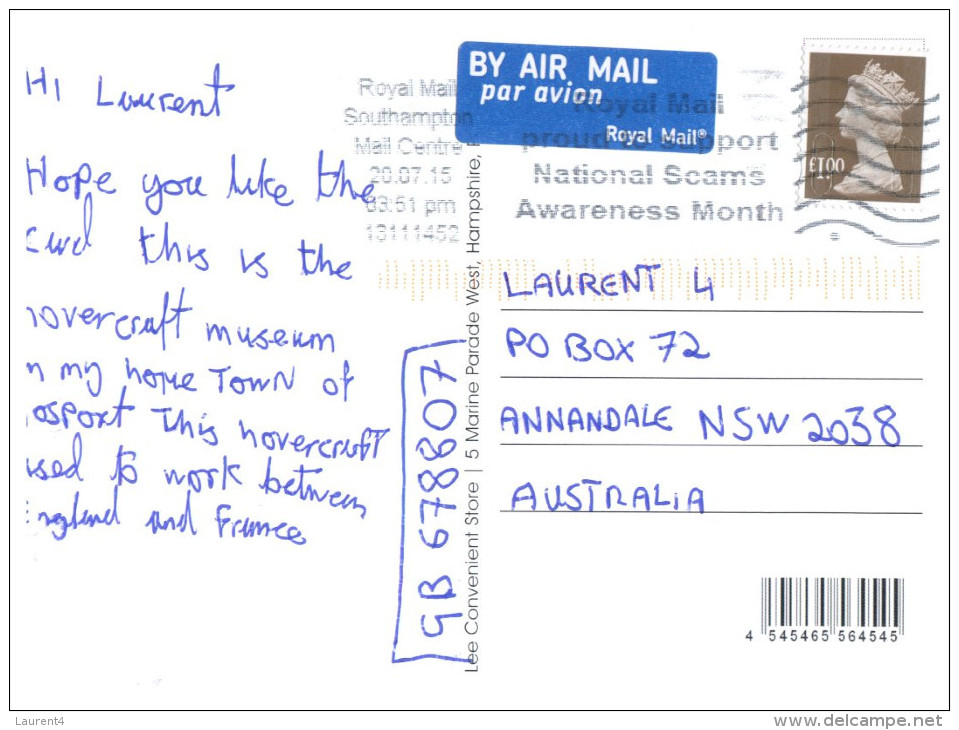 HI Laurent
Hope you like the
card this is the
hovercraft museum
in my home TOWN of
Gosport This hovercraft
used to work between
England and France
Royal Mail
Southampton
Mail Centre
20.07.15
03:51 pm
13111452
BY AIR MAIL
par avion
Royal Mail®
Royal Mail
proud to support
National Scams
Awareness Month
£1.00
GB 678807
Lee Convenient Store | 5 Marine Parade West, Hampshire,
LAURENT 4
PO BOX 72
ANNANDALE NSW 2038
AUSTRALIA
4 545465 564545
Laurent4
www.delcampe.net